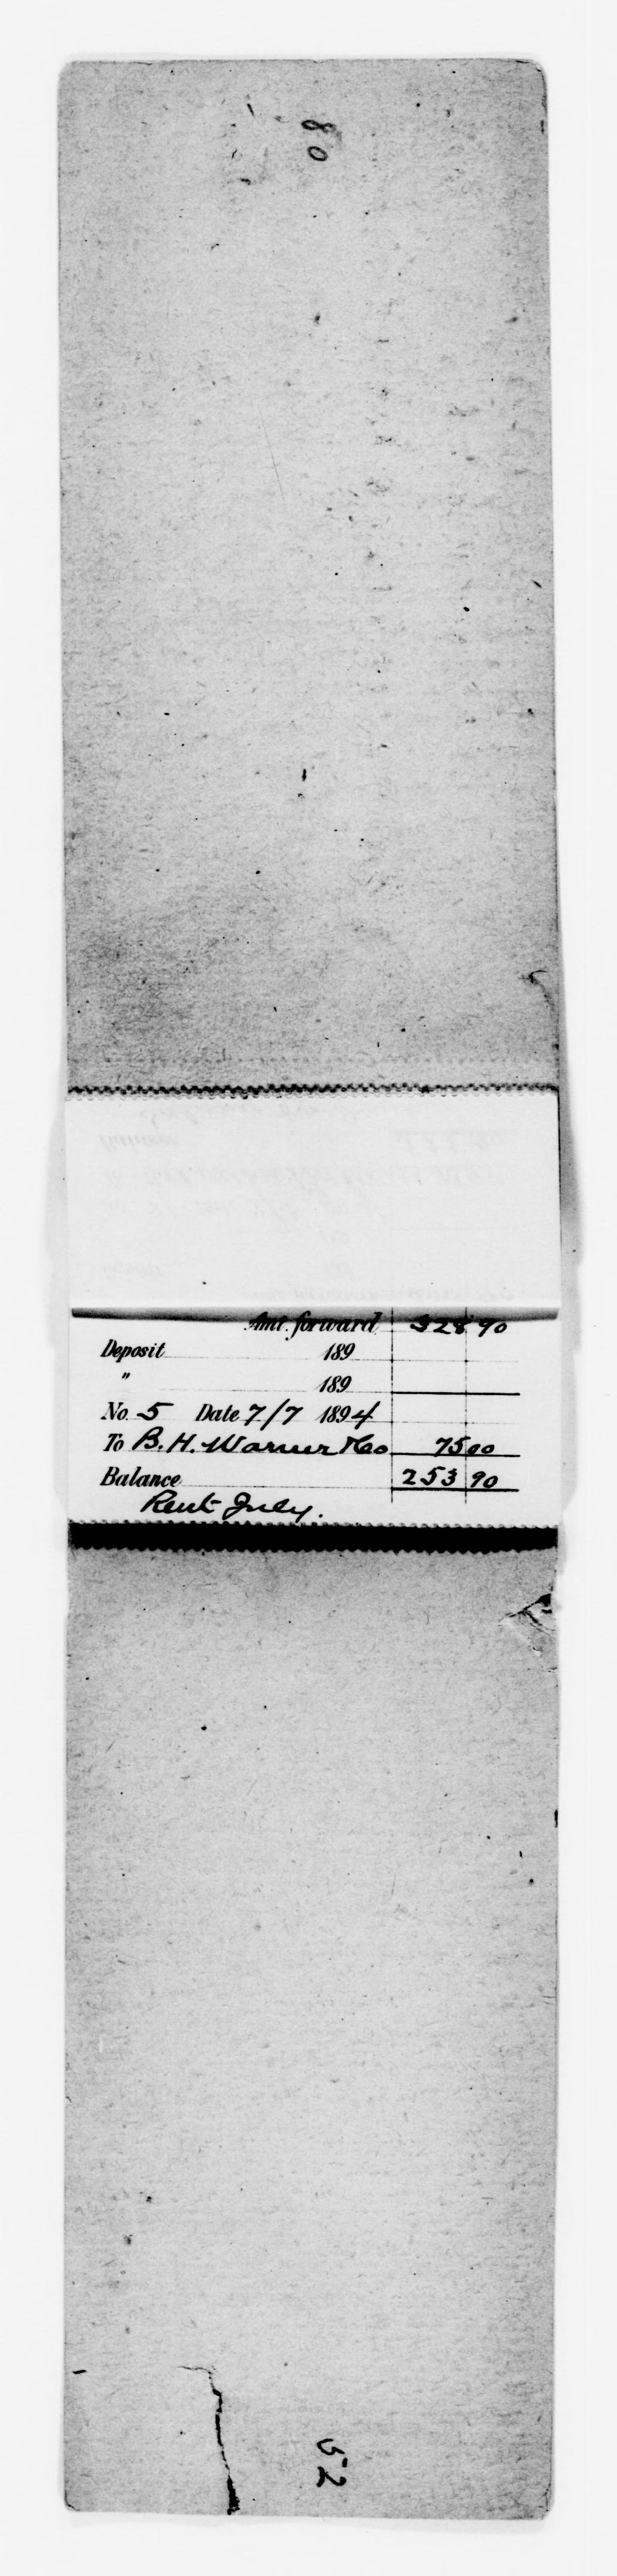 80
Amt. forward 328 90
Deposit 189
" 189
No. 5 Date 7/7 1894
To B. H. Warner & Co 75 00
Balance 253 90
Rent July.
52